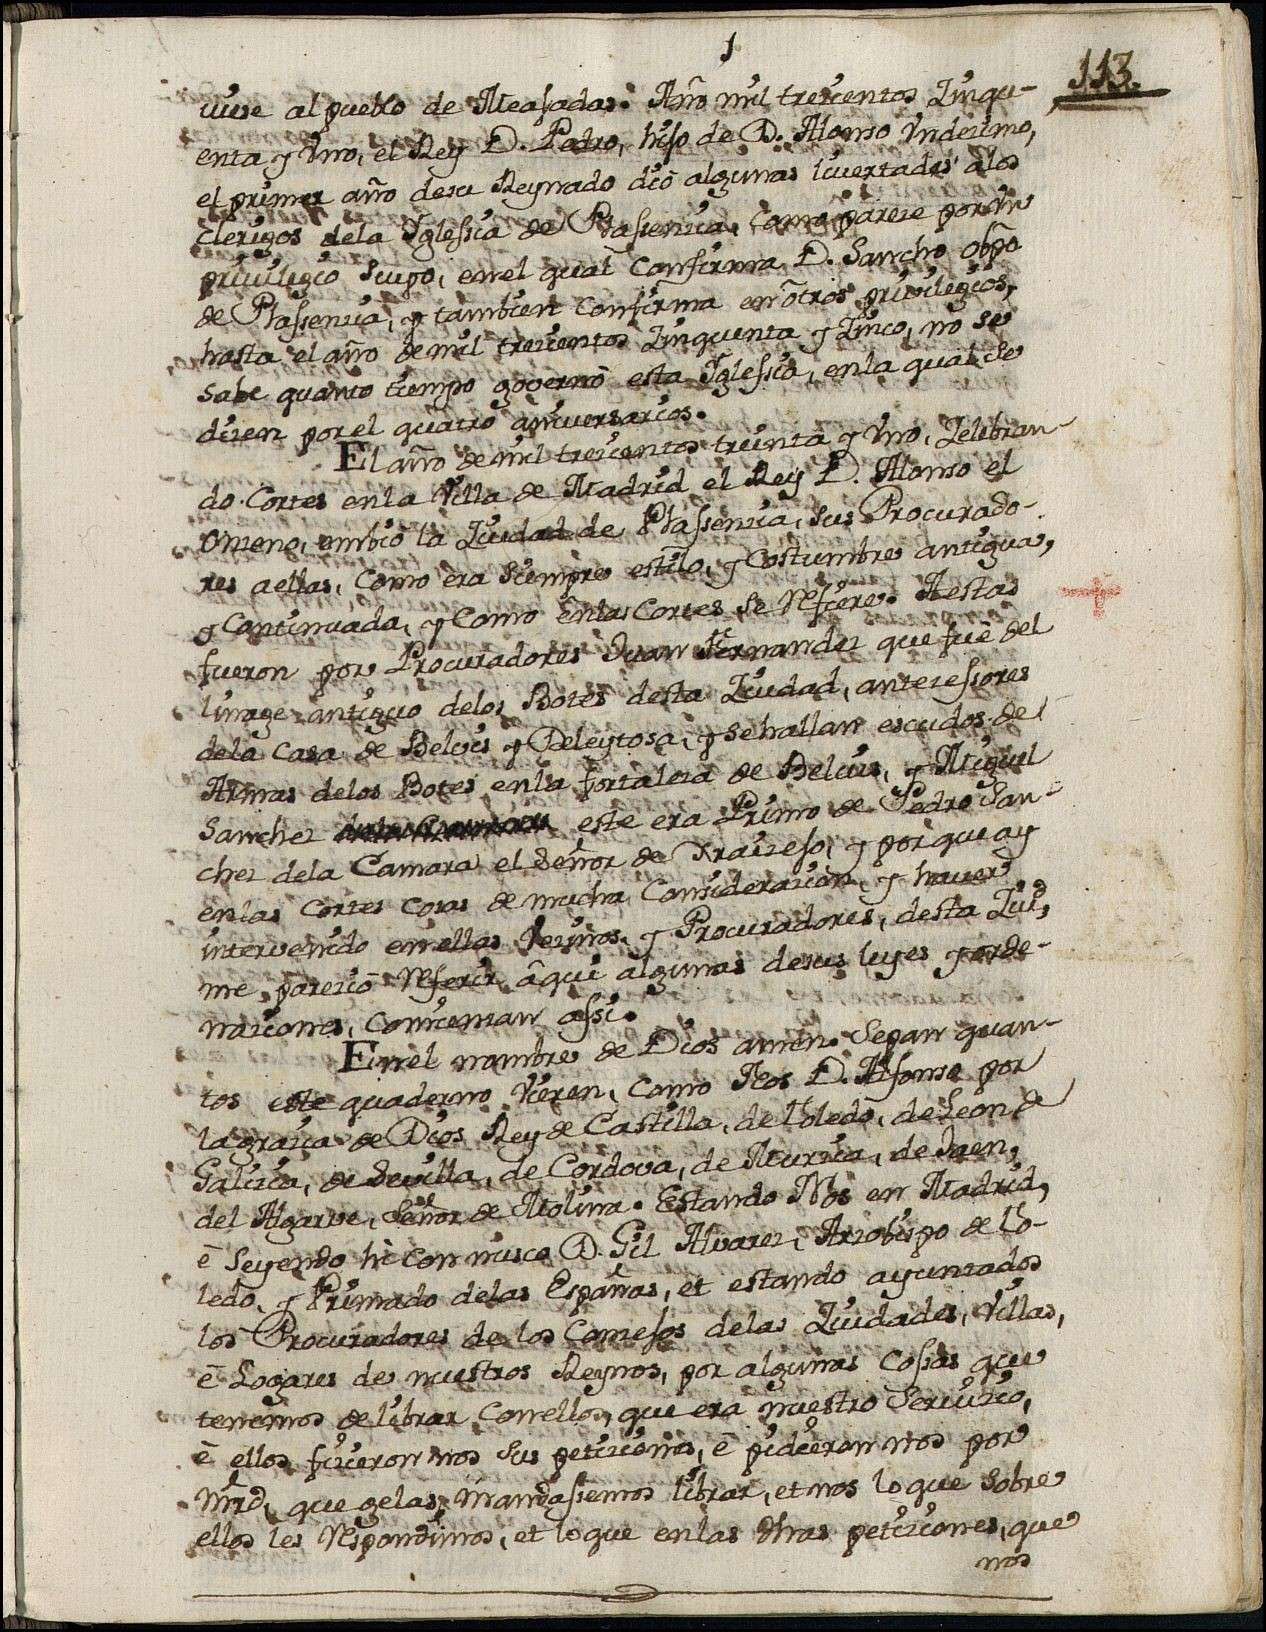 1
113.
vuse al pueblo de Measadas. Año mil trecientos Zinqu-
enta y Uno, el Rey D. Pedro, hijo de D. Alonso Undezimo,
el primer año desu Reynado dió algunas livertades alos
clerigos dela Yglessia de Plassencia, como pareze por Un
privilegio suyo, enel qual confirma D. Sancho obpo
de Plassencia, y tambien confirma en ôtros privilegios,
hasta el año de mil trecientos Zinquenta y Zinco, no se
save quanto tiempo governô esta Yglessia, enla qual se
dizen por el quatro aniversarios.
El año de mil trecientos treinta y Uno, Zelebran-
do Cortes enla Villa de Madrid el Rey D. Alonso el
Onzeno, embiô la Ziudad de Plassencia, sus Procurado-
res a ellas, como era siempre estilo, y Costumbre antigua,
y Continuada, y como ênlas Cortes se refiere. A estas
fueron por Procuradores Juan Fernandez que fuê del
linage antiguo delos Botes desta Ziudad, antezessores
dela casa de Belvis y Deleytosa, y se hallan escudos de
Armas delos Botes enla fortaleza de Belvis, y Miguel
Sanchez este era Primo de Pedro San-
chez dela Camara el señor de Traizeso, y por que ay
enlas Cortes cosas de mucha Consideracion, y haver
intervenido enellas Vezinos, y Procuradores, desta Ziud,
me pareziô referir âqui algunas desus leyes y orde-
naciones, comienzan assi.
Enel nombre de Dios amen. Sepan quan-
tos este quaderno Vieren, como Nos D. Alfonso por
la grazia de Dios Rey de Castilla, de Toledo, de Leon de
Galicia, de Sevilla, de Cordova, de Murcia, de Jaen,
del Algarve, Señor de Molina. Estando Nos en Madrid,
ê seyendo hi connusco D. Gil Alvarez, Arzobispo de To-
ledo, y Primado delas Españas, et estando ayuntados
los Procuradores de los Conzejos delas Ziudades, Villas,
ê Logares de nuestros Reynos, por algunas cossas que
tenemos de librar conellos, que era nuestro servizio,
ê ellos fizieron nos sus petiziones, ê pidieron nos por
mrd, que gelas mandassemos librar, et nos lo que sobre
ellos les respondimos, et lo que enlas dhas petiziones, que
nos